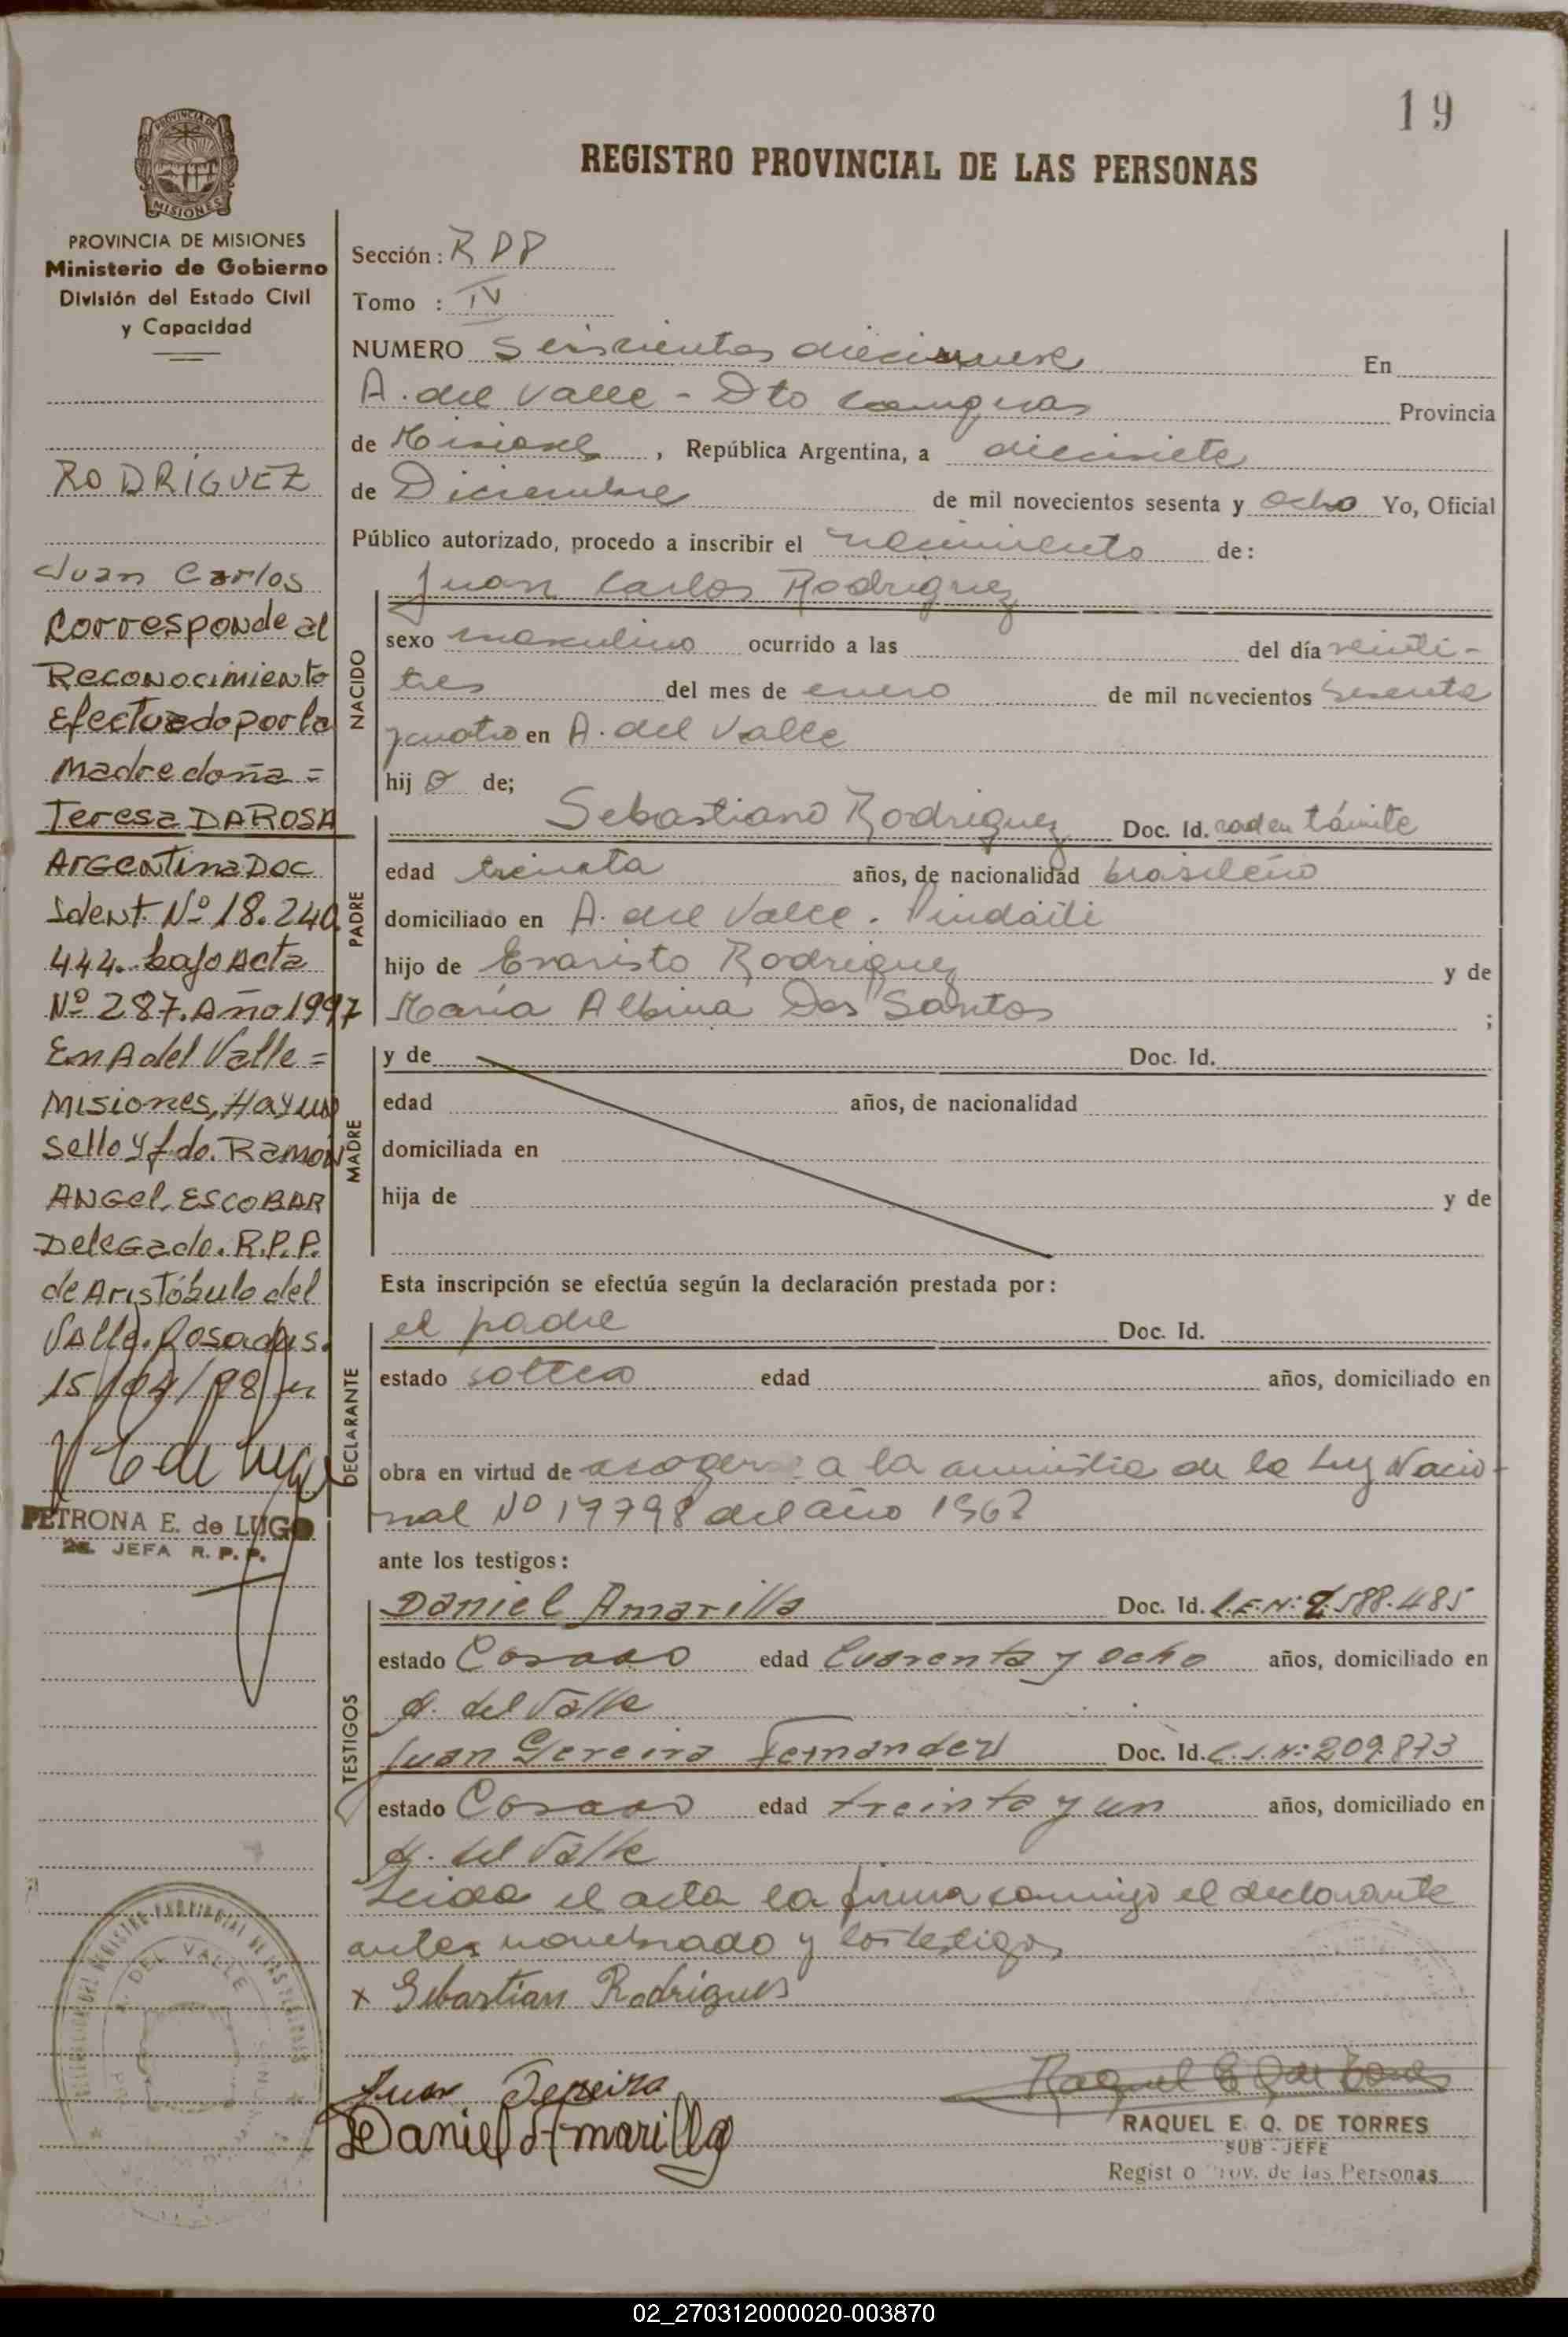 19
REGISTRO PROVINCIAL DE LAS PERSONAS
PROVINCIA DE
MISIONES
PROVINCIA DE MISIONES
Ministerio de Gobierno
División del Estado Civil
y Capacidad
RODRÍGUEZ
Juan Carlos
Corresponde al
Reconocimiento
Efectuado por la
Madre doña =
Teresa DA ROSA
Argentina Doc
Ident. Nº 18.240.
444. bajo Acta
Nº 287. Año 1997
En A del Valle =
Misiones, Hay un
Sello y fdo. Ramón
Angel ESCOBAR
Delegado. R.P.P.
de Aristóbulo del
Valle. Posadas.
15/04/98
PETRONA E. de LUGO
2a. JEFA R. P. P.
Sección: R P P
Tomo : IV
NUMERO Seiscientos diecinueve En
A. del Valle - Dto Cainguas Provincia
de Misiones , República Argentina, a diecisiete
de Diciembre de mil novecientos sesenta y ocho Yo, Oficial
Público autorizado, procedo a inscribir el nacimiento de:
Juan Carlos Rodriguez
NACIDO
sexo masculino ocurrido a las del día veinti-
tres del mes de enero de mil novecientos sesenta
y cuatro en A. del Valle
hij o de;
PADRE
Sebastiano Rodriguez Doc. Id. en támite
edad treinta años, de nacionalidad brasileño
domiciliado en A. del Valle. Pindaiti
hijo de Evaristo Rodriguez y de
María Albina Dos Santos ;
MADRE
y de Doc. Id.
edad años, de nacionalidad
domiciliada en
hija de y de
Esta inscripción se efectúa según la declaración prestada por:
DECLARANTE
el padre Doc. Id.
estado soltero edad años, domiciliado en
obra en virtud de acogerse a la amnistia de la Ley Nacio-
nal Nº 17798 del año 1968
ante los testigos:
TESTIGOS
Daniel Amarilla Doc. Id. L.E.Nº: 588.485
estado Casado edad Cuarenta y ocho años, domiciliado en
A. del Valle
Juan Pereira Fernandez Doc. Id. C.I.Nº: 209.873
estado Casado edad treinta y un años, domiciliado en
A. del Valle
Leida el acta la firma conmigo el declarante
antes nombrado y los testigos
x Sebastian Rodrigues
Juan Pereira
Daniel Amarilla
RAQUEL E. Q. DE TORRES
SUB - JEFE
Regist o rov. de las Personas
DEL VALLE
02_270312000020-003870